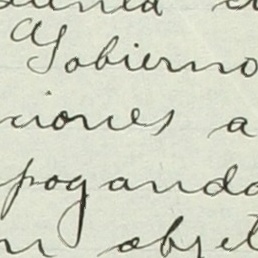 Gobierno
ciones a
pogando
objet